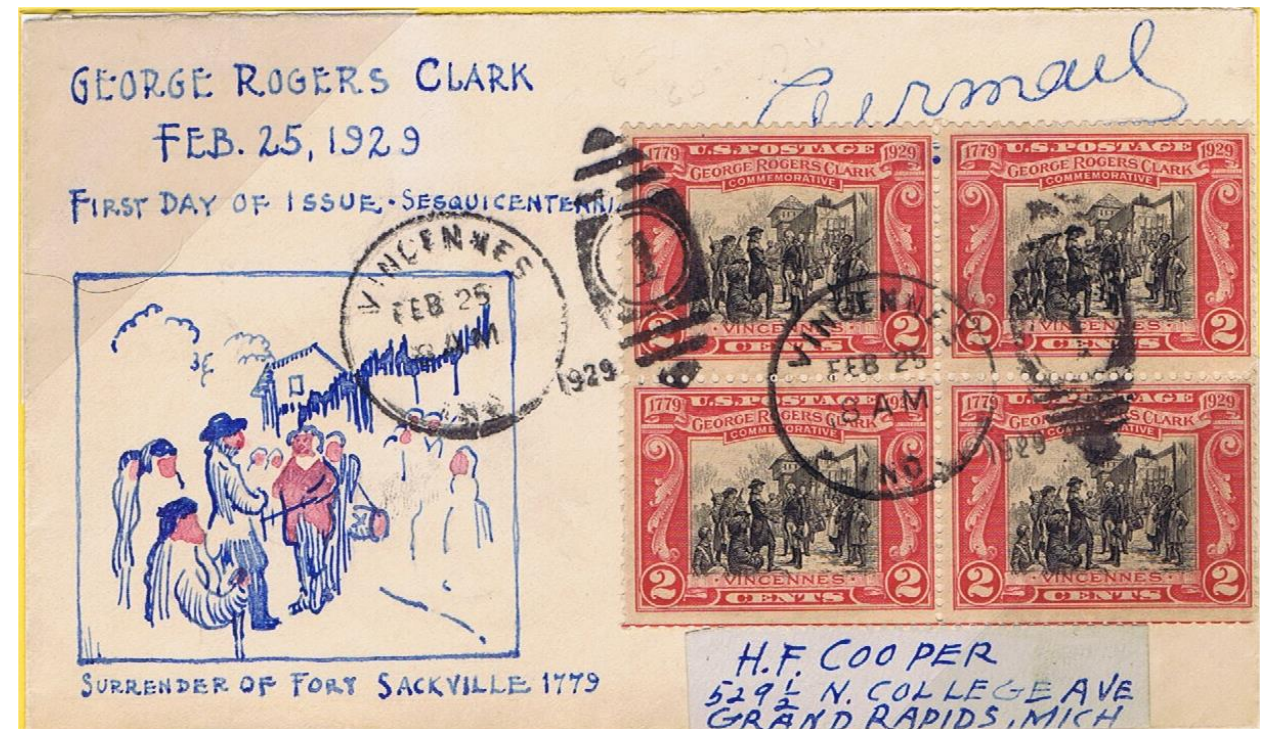 GEORGE ROGERS CLARK
FEB. 25, 1929
FIRST DAY OF ISSUE · SESQUICENTENNI
SURRENDER OF FORT SACKVILLE 1779
VINCENNES
FEB 25
AM
IND
1929
1
1779 U.S. POSTAGE 1929
GEORGE ROGERS CLARK
COMMEMORATIVE
2 · VINCENNES 2
CENTS
1779 U.S. POSTAGE 1929
GEORGE ROGERS CLARK
COMMEMORATIVE
2 2
CENTS
VINCENNES
FEB 25
8 AM
IND
1929
1779 U.S. POSTAGE 1929
GEORGE ROGERS CLARK
COMMEMORATIVE
2 · VINCENNES · 2
CENTS
1779 U.S. POSTAGE 1929
GEORGE ROGERS CLARK
COMMEMORATIVE
2 · VINCENNES · 2
CENTS
H.F. COOPER
529 1/2 N. COLLEGE AVE
GRAND RAPIDS, MICH